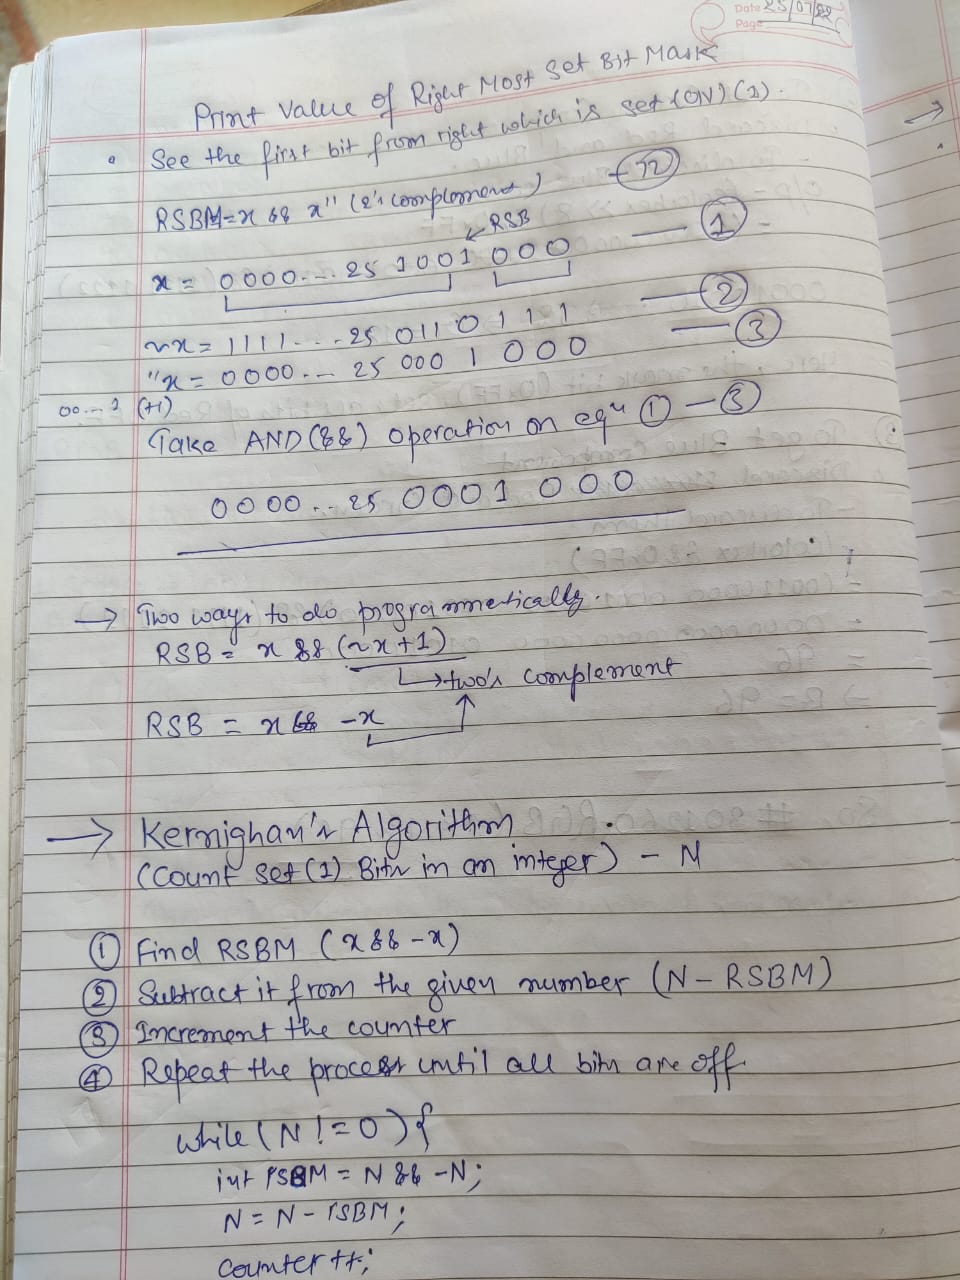 Date 25/07/22
Page
Print Value of Right Most Set Bit Mask
• See the first bit from right which is set (ON) (1).
RSBM = x && x'' (2's complement)
RSB
x = 0000... 25 1001 000 — 1
~x = 1111... 25 0110 111 — 2
''x = 0000... 25 000 1 000 — 3
00...1 (+1)
Take AND (&&) operation on eqn 1 — 3
0000... 25 0001 000
→ Two ways to do programmetically.
RSB = x && (~x+1)
↳ two's complement
RSB = x && -x
→ Kernighan's Algorithm
(Count Set (1) Bits in an integer) - N
1 Find RSBM (x && -x)
2 Subtract it from the given number (N - RSBM)
3 Increment the counter
4 Repeat the process until all bits are off.
while (N != 0) {
int rSBM = N && -N;
N = N - rSBM;
counter ++;